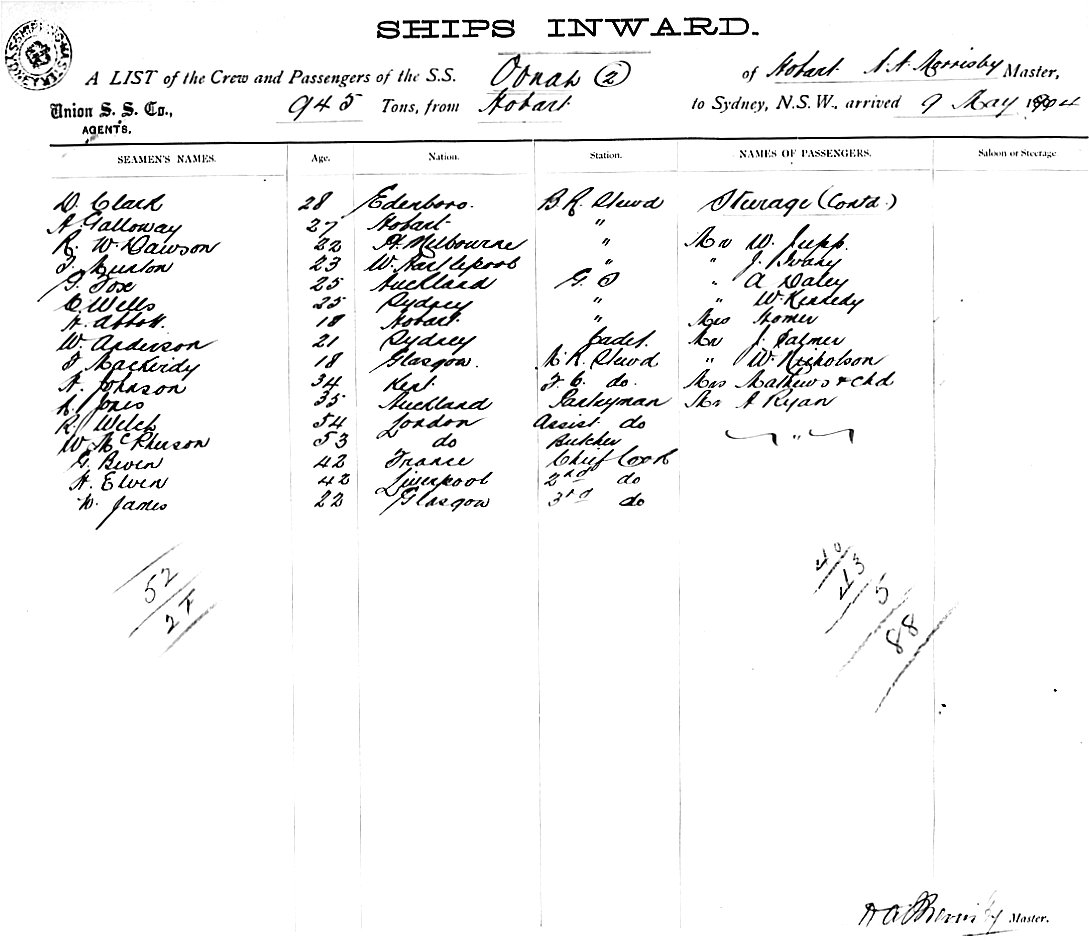 SHIPS INWARD.
A LIST of the Crew and Passengers of the S.S. Oonah (2) of Hobart Morrisby Master,
Union S. S. Co., 945 Tons, from Hobart to Sydney, N.S.W., arrived 9 May 1904
AGENTS.
SEAMEN'S NAMES. Age. Nation. Station. NAMES OF PASSENGERS. Saloon or Steerage
D. Clark 28 Edenboro. B. R. Stewd Steerage (Contd.)
A Galloway 27 Hobart "
R. W. Dawson 22 Melbourne " Mr W. Jupp.
23 W. Hartlepool " "
Fox 25 Auckland G. S " A Daley
C. Wells 25 Sydney " " W. Kennedy
H. Abbott. 18 Hobart " Mrs Homer
W. Anderson 21 Sydney Cadet. Mr J. Palmer
Mackirdy 18 Glasgow. M. R. Stewd " W. Nicholson
A. Johnson 34 Kent F. C. do. Mrs Mathews & Chd
Jones 35 Auckland Pantryman Mr A Ryan
R. Welch 54 London Assist do
W. McPherson 53 do Butcher "
G. Biven 42 France Chief Cook
H. Elvin 42 Liverpool 2nd do
W. James 22 Glasgow 3rd do
52
27
40
43
5
88
Master.